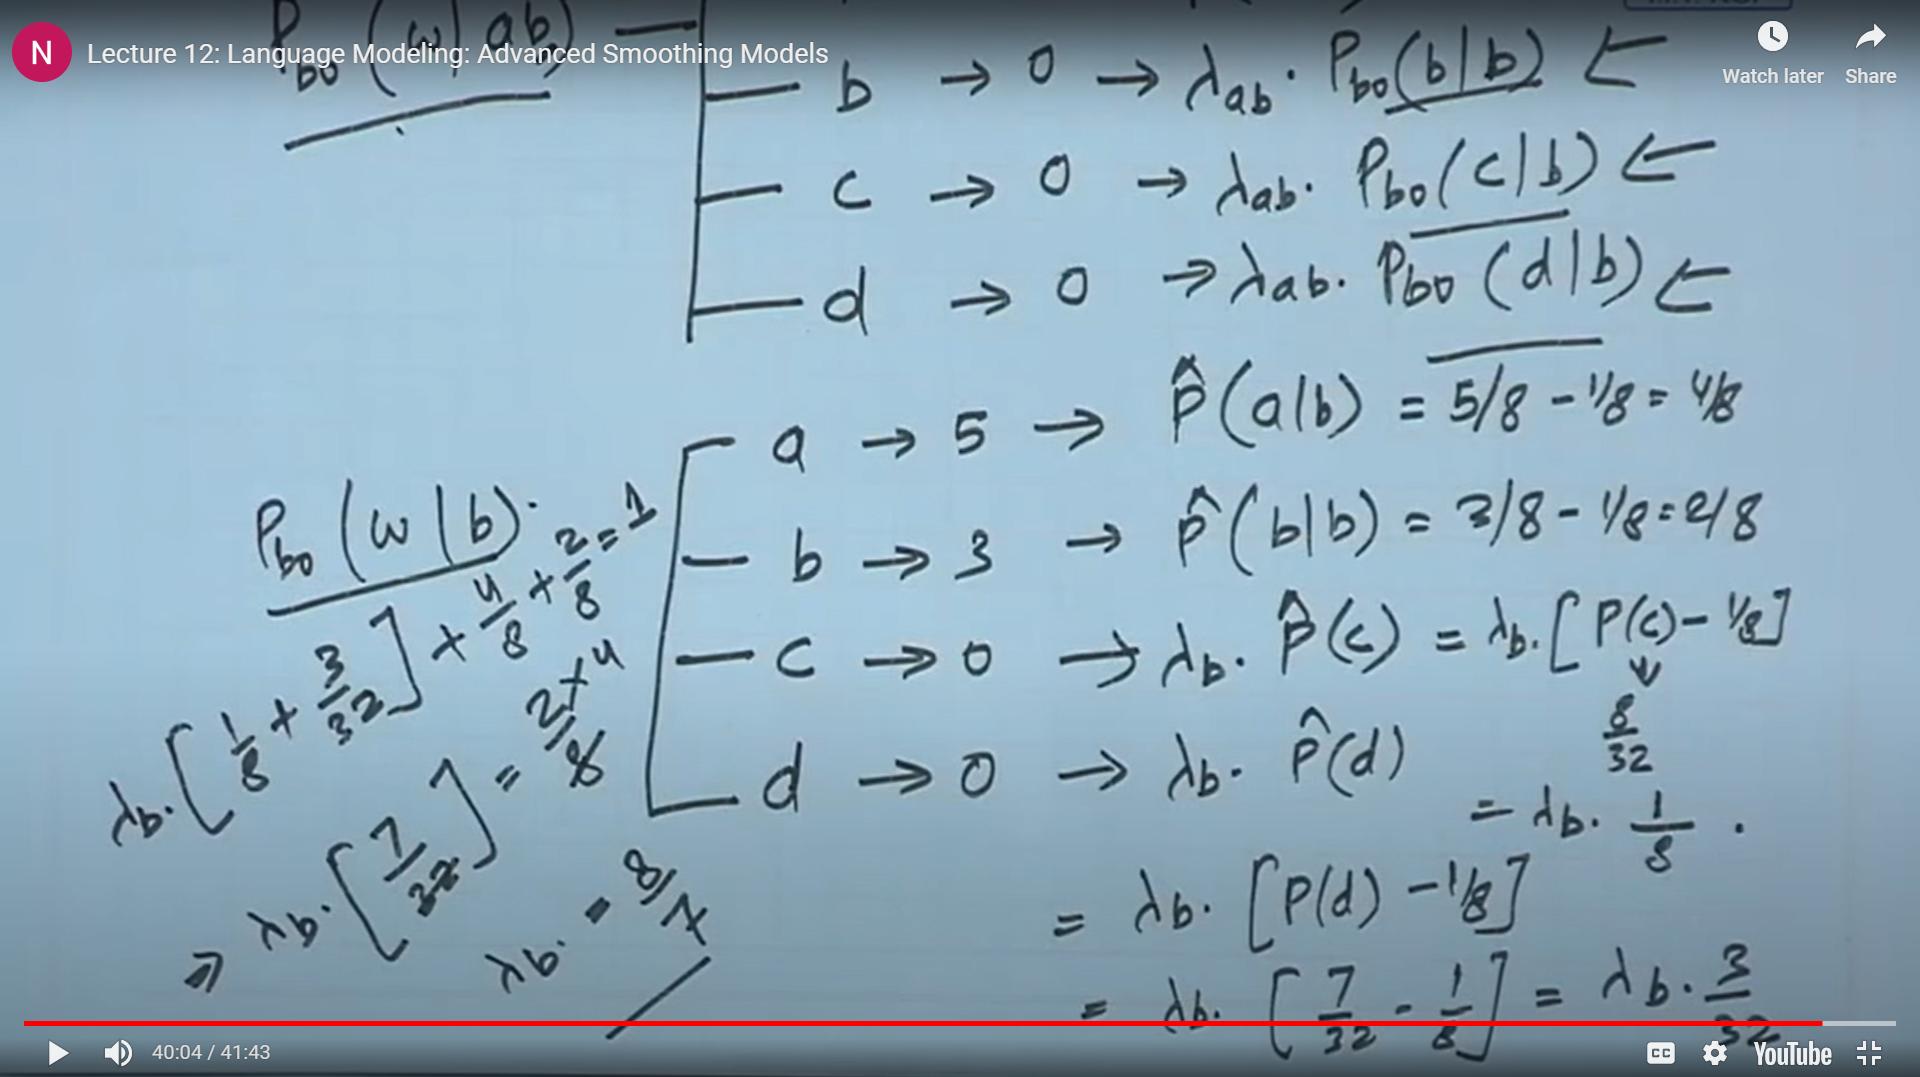 N Lecture 12: Language Modeling: Advanced Smoothing Models
Watch later Share
P_bo (w | ab)
b → 0 → λ_ab · P_bo (b | b) ←
c → 0 → λ_ab · P_bo (c | b) ←
d → 0 → λ_ab · P_bo (d | b) ←
a → 5 → P̂ (a | b) = 5/8 - 1/8 = 4/8
P_bo (w | b)
b → 3 → P̂ (b | b) = 3/8 - 1/8 = 2/8
c → 0 → λ_b · P̂ (c) = λ_b · [P(c) - 1/8]
8/32
d → 0 → λ_b · P̂ (d)
= λ_b · 1/8 ·
= λ_b · [P(d) - 1/8]
= λ_b · [7/32 - 1/8] = λ_b · 3/32
λ_b · [1/8 + 3/32] + 4/8 + 2/8 = 1
⇒ λ_b · [7/32] = 2/8
λ_b = 8/7
40:04 / 41:43
CC YouTube